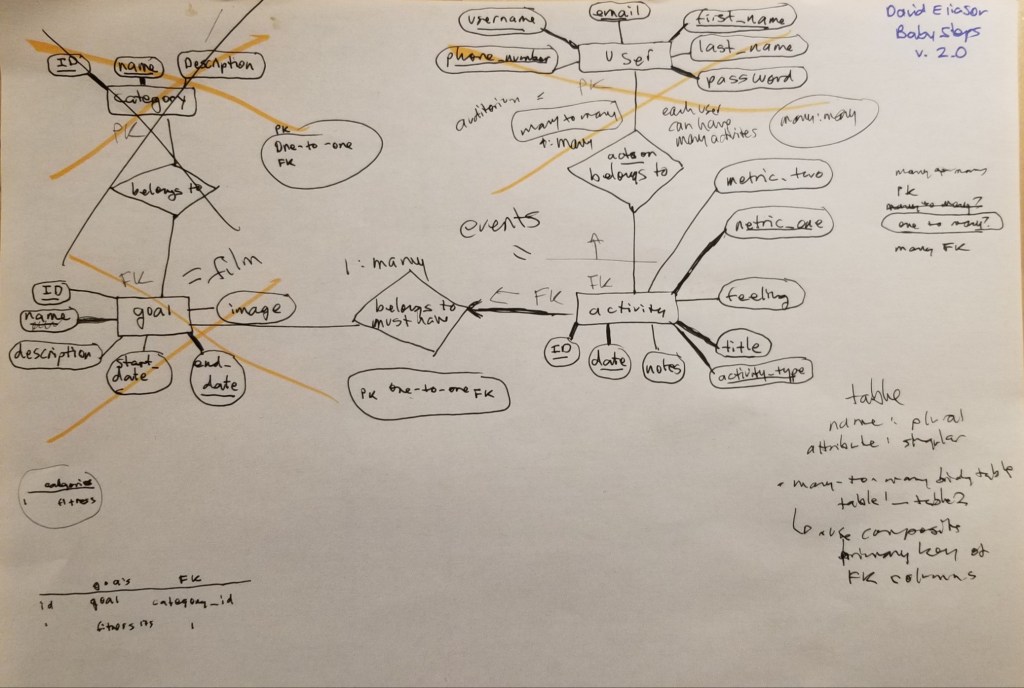 David Eliasor
Baby Steps
v. 2.0
ID
name
Description
category
PK
PK
One-to-one
FK
belongs to
username
email
first_name
phone_number
user
last_name
password
PK
auditorium
many to many
1: many
each user
can have
many activites
many:many
acts on
belongs to
metric_two
metric_one
PK
many to many?
one to many?
many FK
events
=
FK
= film
1: many
ID
name
goal
image
description
start_
date
end_
date
belongs to
must have
FK
FK
activity
feeling
title
activity_type
ID
date
notes
PK one-to-one FK
table
name: plural
attribute: singular
• many-to-many
table1_table2
use composite
primary key of
FK columns
categories
1 fitness
goals FK
id goal category_id
1